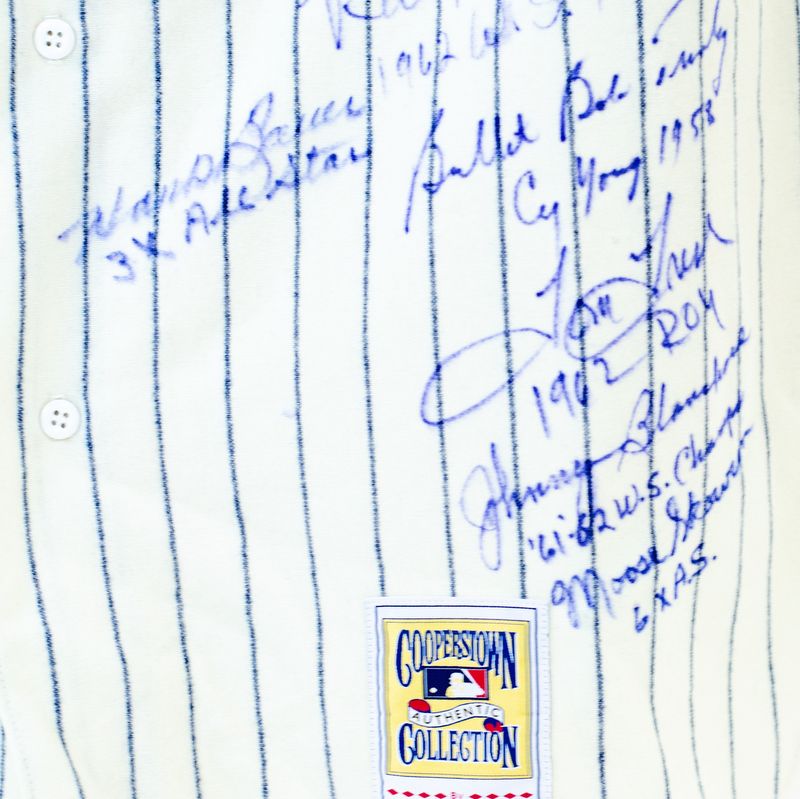 1962 W.S.
Hank Bauer
3X All Star
Bullet Bob Turley
Cy Young 1958
Tom Tresh
1962 ROY
Johnny Blanchard
'61-62 W.S. Champ
Moose Skowron
6 x A.S.
COOPERSTOWN
AUTHENTIC
COLLECTION
BY